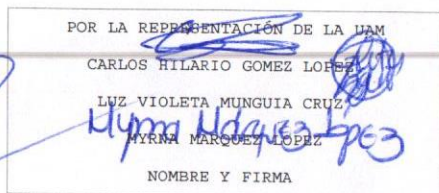 POR LA REPRESENTACIÓN DE LA UAM
CARLOS HILARIO GOMEZ LOPEZ
LUZ VIOLETA MUNGUIA CRUZ
Myrna Márquez López
MYRNA MARQUEZ LOPEZ
NOMBRE Y FIRMA